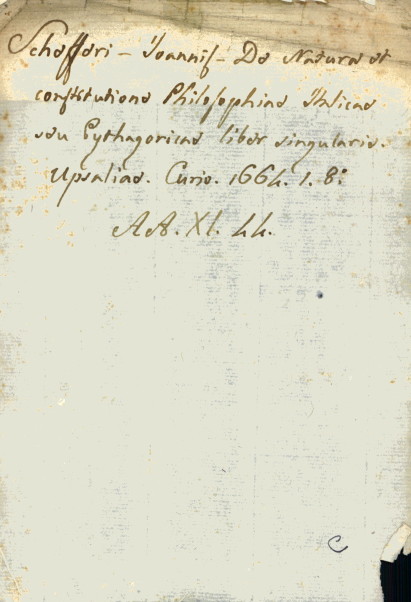 Schefferi - Joannis - De Natura et
constitutione Philosophiae Italicae
seu Pythagoricae liber singularis.
Upsaliae. Curio. 1664. 1. 8:
AA. XI. 44.
C